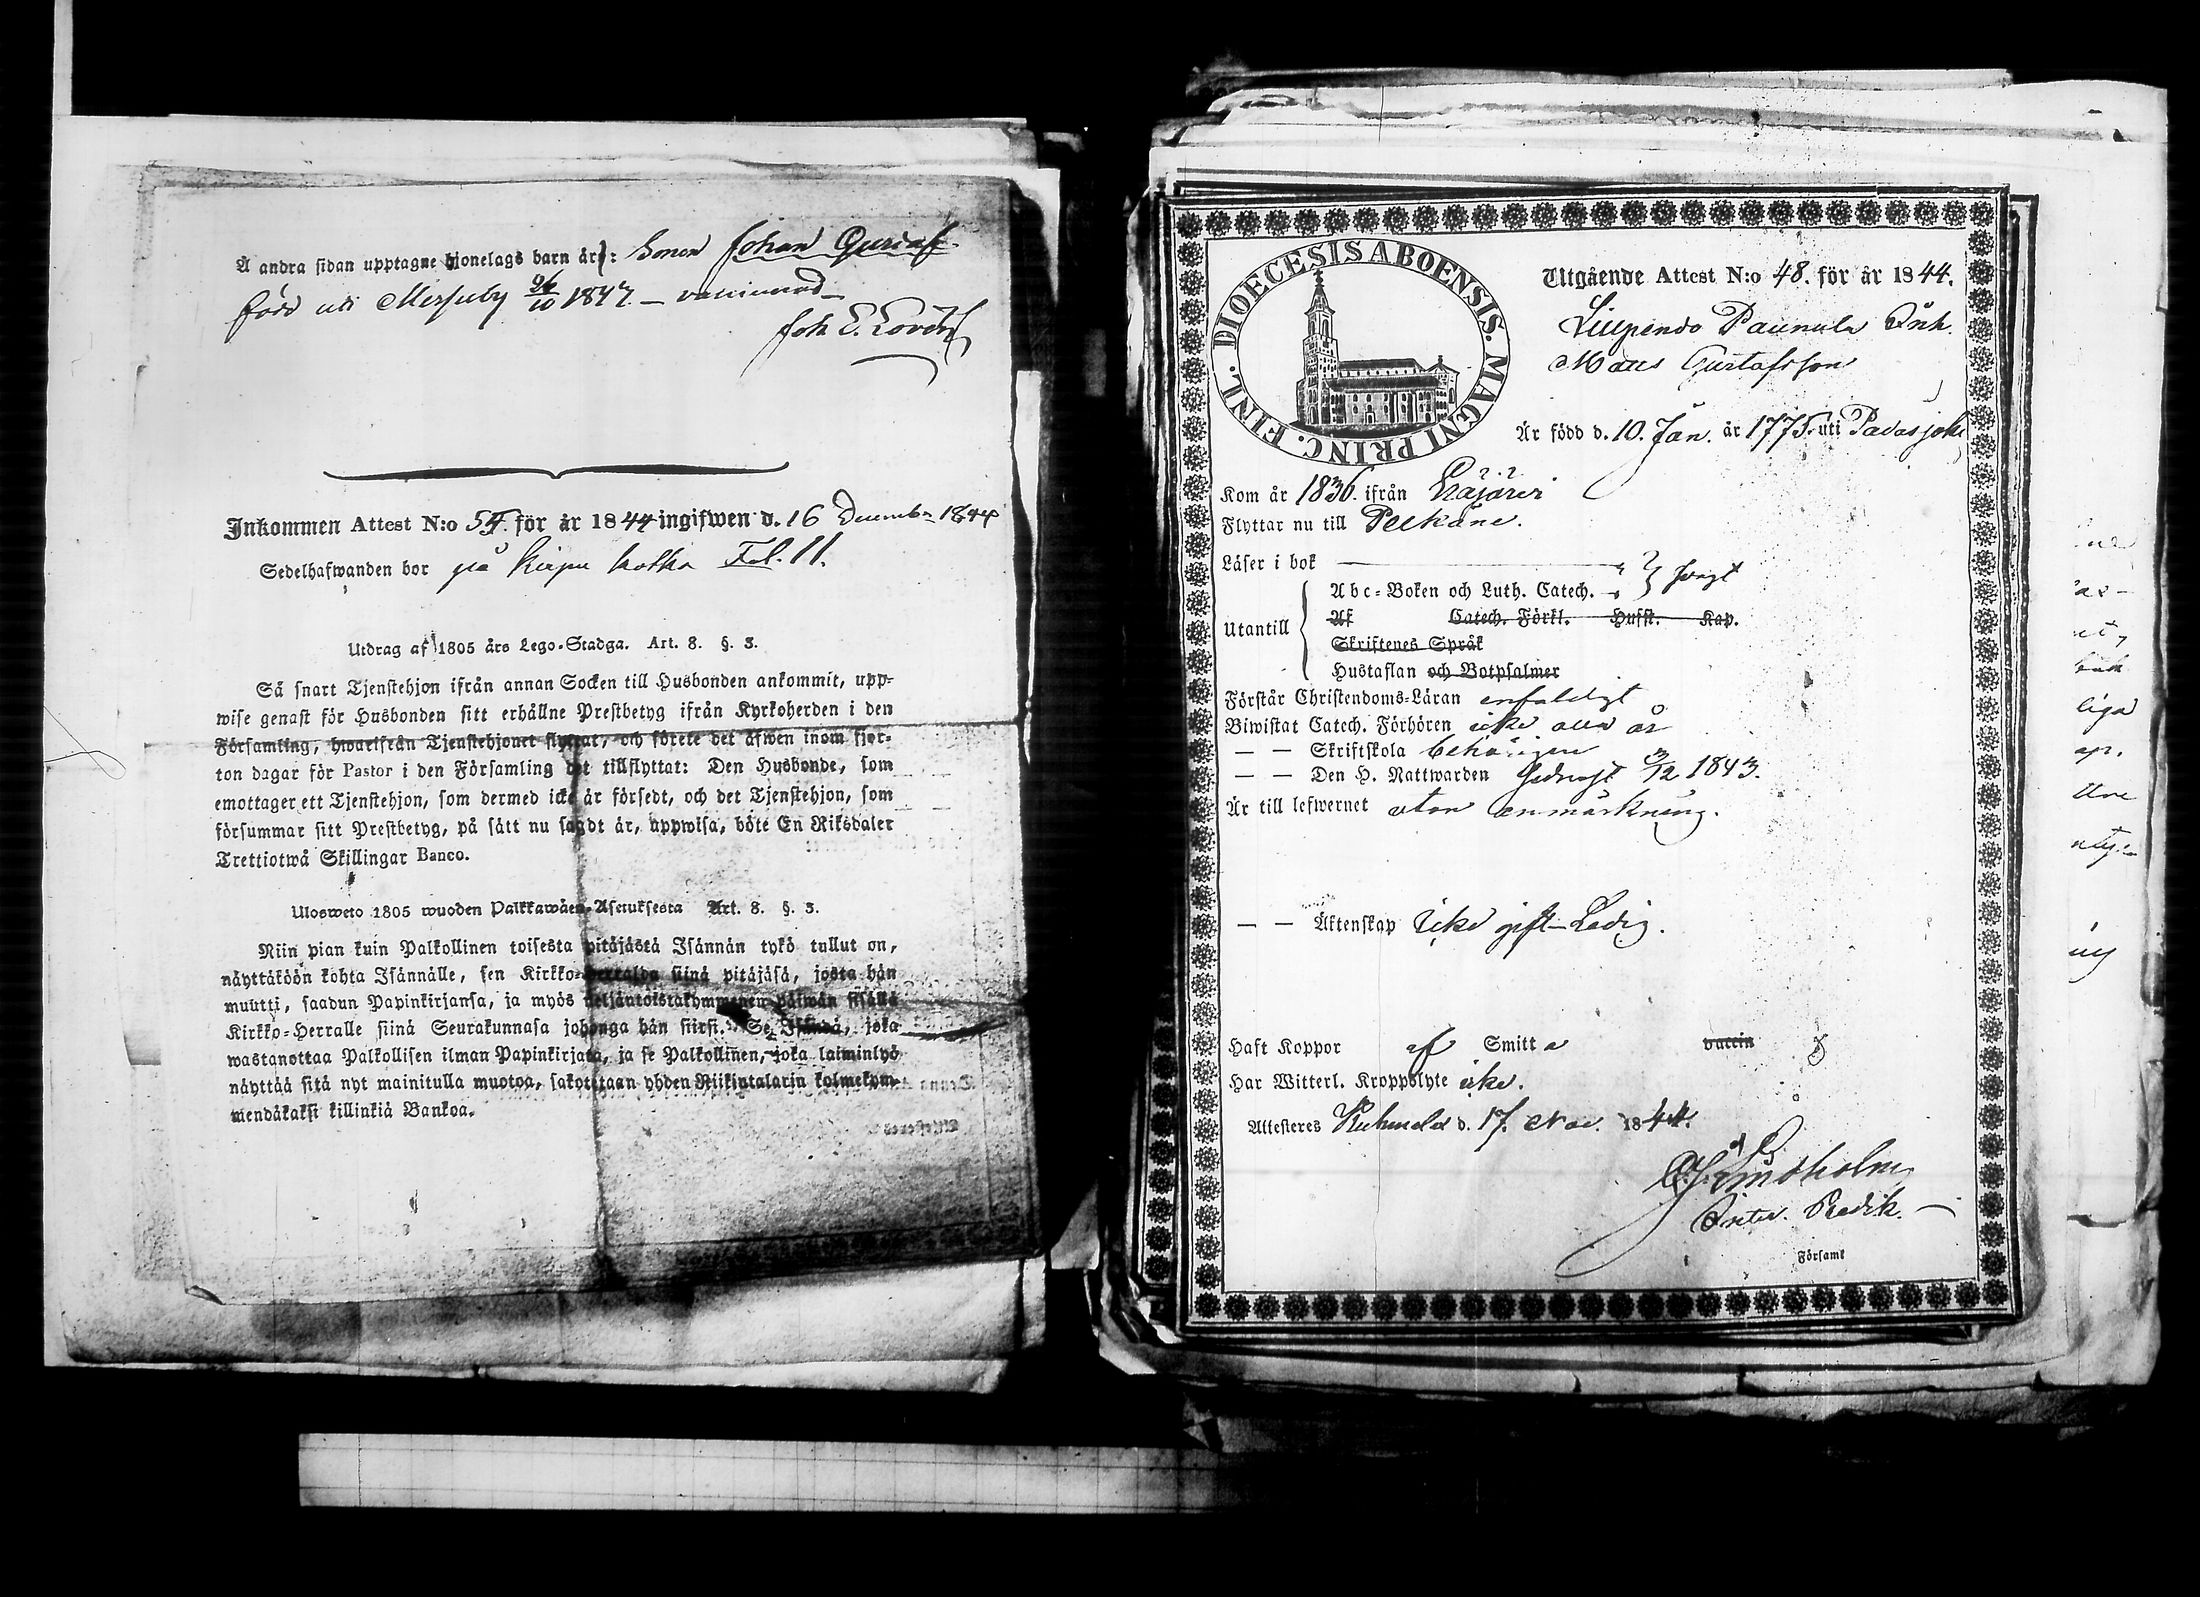 Å andra sidan upptagne hjonelags barn är: Sonen Johan Gustaf
född uti 26/10 1842 – vaccinerad –
Joh E. Lovén
Inkommen Attest N:o 54. för år 1844 ingifwen d. 16 Decemb. 1844
Sedelhafwanden bor på Fol. 11.
Utdrag af 1805 års Lego-Stadga. Art. 8. §. 3.
Så snart Tjenstehjon ifrån annan Socken till Husbonden ankommit, upp-
wise genast för Husbonden sitt erhållne Prestbetyg ifrån Kyrkoherden i den
Församling, hwarifrån Tjenstehjonet flyttat, och förete det äfwen inom fjor-
ton dagar för Pastor i den Församling det tillflyttat: Den Husbonde, som
emottager ett Tjenstehjon, som dermed icke är försedt, och det Tjenstehjon, som
försummar sitt Prestbetyg, på sätt nu sagdt är, uppwisa, böte En Riksdaler
Trettiotwå Skillingar Banco.
Ulosweto 1805 wuoden Palkkawäen-Asetuksesta Art. 8. §. 3.
Niin pian kuin Palkollinen toisesta pitäjästä Isännän tykö tullut on,
näyttäköön kohta Isännälle, sen Kirkko-Herralda siinä pitäjäsä, josta hän
muutti, saadun Papinkirjansa, ja myös neljäntoistakymmenen päiwän sisällä
Kirkko-Herralle siinä Seurakunnasa johonga hän siirsi. Se Isändä, joka
wastanottaa Palkollisen ilman Papinkirjata, ja se Palkollinen, joka laiminlyö
näyttää sitä nyt mainitulla muotoa, sakotetaan yhden Riikintalarin kolmekym-
mendäkaksi killinkiä Bankoa.
DIOECESIS ABOENSIS. MAGNI PRINC. FINL.
Utgående Attest N:o 48. för år 1844.
Paunula Inh.
Matts Gustafsson
Är född d. 10. Jan. år 1775. uti Padasjoki
Kom år 1836. ifrån
Flyttar nu till Pelkäne.
Läser i bok
Abc-Boken och Luth. Catech. swagt
Utantill
Af Catech. Förkl. Husst. Kap.
Skriftenes Språk
Hustaflan och Botpsalmer
Förstår Christendoms-Läran enfaldigt
Biwistat Catech. Förhören icke alla år
— — Skriftskola behörigen
— — Den H. Nattwarden sednast 3/12 1843.
Är till lefwernet utan anmärkning.
— — Äktenskap Icke gift – Ledig.
Haft Koppor af Smitta vaccin
Har Witterl. Kroppslyte icke.
Attesteres Kuhmola d. 17. Nov. 1844.
Lindholm
Predik.
Församl